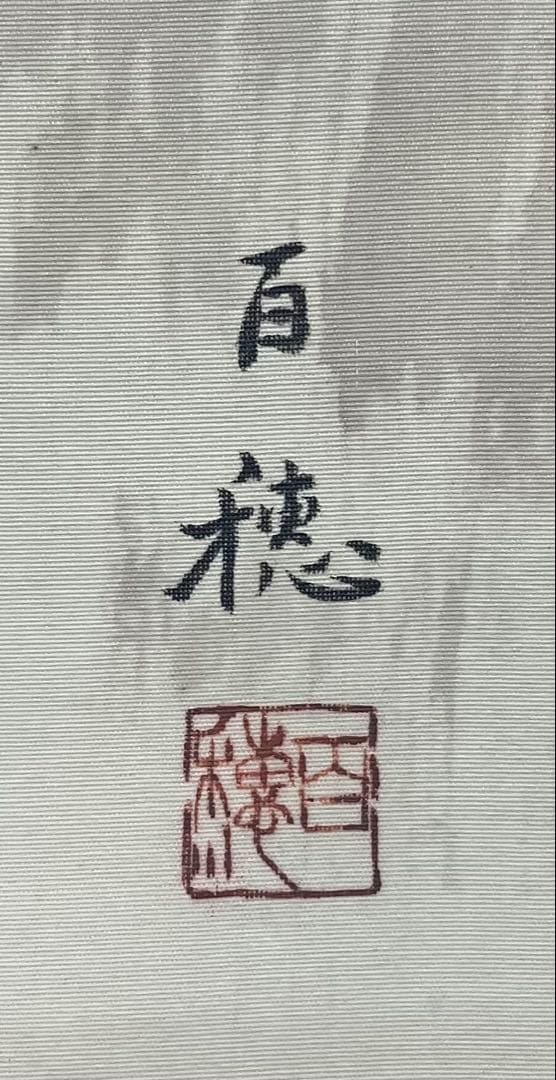 百穂
百穂